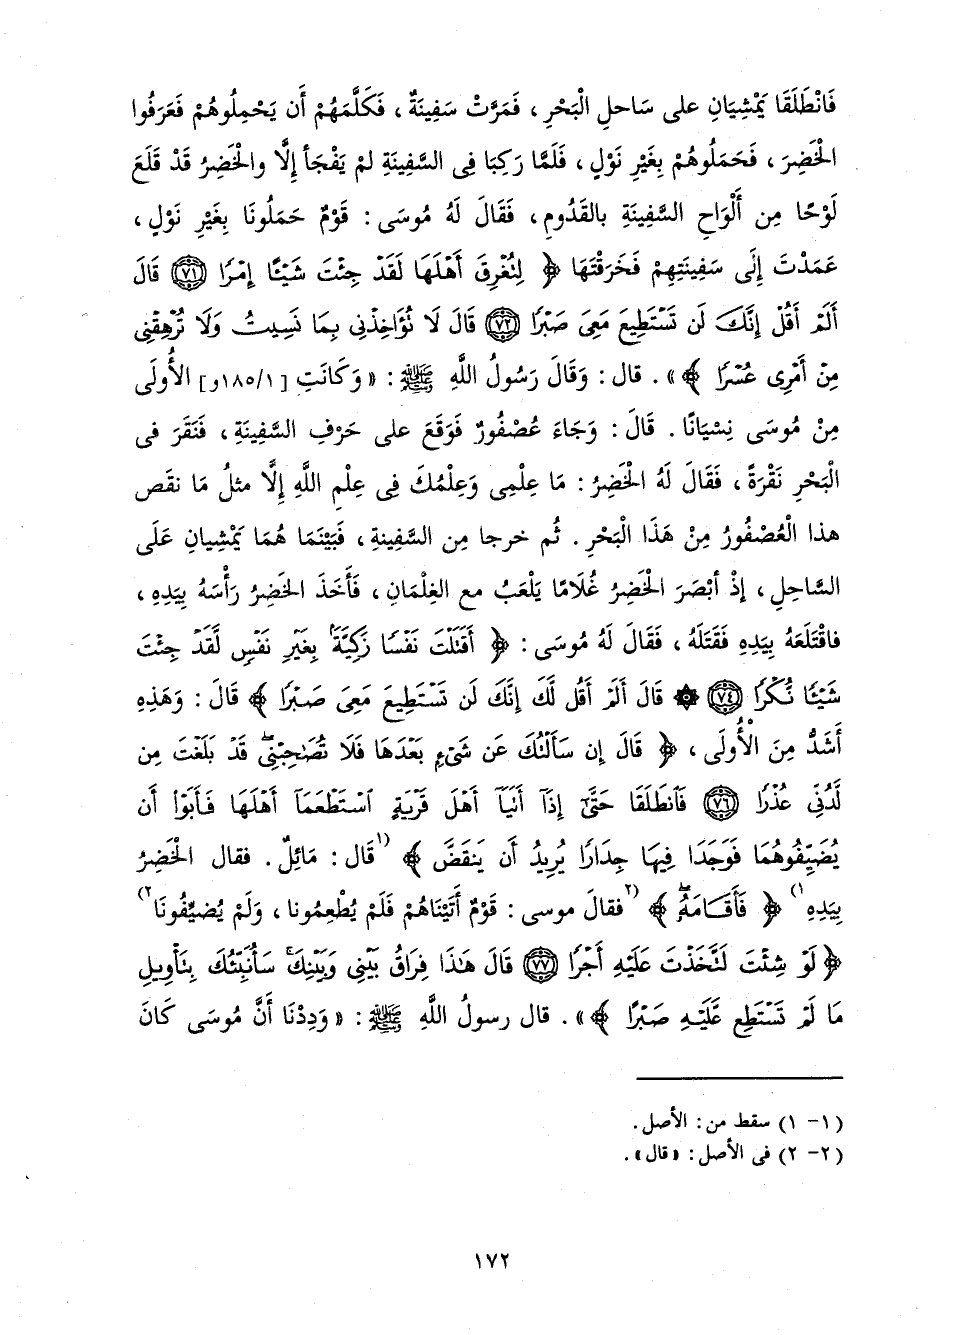 فَانْطَلَقَا يَمْشِيَانِ على سَاحلِ الْبَحْرِ ، فَمَرَّتْ سَفِينَةٌ ، فَكَلَّمَهُمْ أَن يَحْمِلُوهُمْ فَعَرَفُوا
الْخَضِرَ ، فَحَمَلُوهُمْ بِغَيْرِ نَوْلٍ ، فَلَمَّا رَكِبَا فِى السَّفِينَةِ لمْ يَفْجَأ إِلَّا والْخَضِرُ قَدْ قَلَعَ
لَوْحًا مِن أَلْوَاحِ السَّفِينَةِ بالقَدُومِ ، فَقَالَ لَهُ مُوسَى : قَوْمٌ حَمَلُونَا بِغَيْرِ نَوْلٍ ،
عَمَدْتَ إِلَى سَفِينَتِهِمْ فَخَرَقْتَهَا ﴿ لِتُغْرِقَ أَهْلَهَا لَقَدْ جِئْتَ شَيْئًا إِمْرًا ﴿٧١﴾ قَالَ
أَلَمْ أَقُلْ إِنَّكَ لَن تَسْتَطِيعَ مَعِىَ صَبْرًا ﴿٧٢﴾ قَالَ لَا تُؤَاخِذْنِى بِمَا نَسِيتُ وَلَا تُرْهِقْنِى
مِنْ أَمْرِى عُسْرًا ﴾» . قال : وَقَالَ رَسُولُ اللَّهِ ﷺ : « وَكَانَتِ [١/ ١٨٥و] الأُولَى
مِنْ مُوسَى نِسْيَانًا . قَالَ : وَجَاءَ عُصْفُورٌ فَوَقَعَ على حَرْفِ السَّفِينَةِ ، فَنَقَرَ فى
الْبَحْرِ نَقْرَةً ، فَقَالَ لَهُ الخَضِرُ : مَا عِلْمِى وَعِلْمُكَ فِى عِلْمِ اللَّهِ إِلَّا مثلُ مَا نقَص
هذا الْعُصْفُورُ مِنْ هَذَا الْبَحْرِ . ثُم خرجا مِن السَّفِينةِ ، فَبَيْنَمَا هُمَا يَمْشِيانِ عَلَى
السَّاحِلِ ، إِذْ أبْصَرَ الْخَضِرُ غُلَامًا يَلْعَبُ مع الغِلْمَانِ ، فَأَخَذَ الخَضِرُ رَأْسَهُ بِيَدِهِ ،
فاقْتَلَعَهُ بِيَدِهِ فَقَتَلَهُ ، فَقَالَ لَهُ مُوسَى : ﴿ أَقَتَلْتَ نَفْسًا زَكِيَّةً بِغَيْرِ نَفْسٍ لَّقَدْ جِئْتَ
شَيْئًا نُّكْرًا ﴿٧٤﴾ ۞ قَالَ أَلَمْ أَقُل لَّكَ إِنَّكَ لَن تَسْتَطِيعَ مَعِىَ صَبْرًا ﴾ قَالَ : وَهَذِهِ
أَشَدُّ مِنَ الْأُولَى ، ﴿ قَالَ إِن سَأَلْتُكَ عَن شَىْءٍ بَعْدَهَا فَلَا تُصَاحِبْنِى قَدْ بَلَغْتَ مِن
لَّدُنِّى عُذْرًا ﴿٧٦﴾ فَانطَلَقَا حَتَّى إِذَا أَتَيَا أَهْلَ قَرْيَةٍ اسْتَطْعَمَا أَهْلَهَا فَأَبَوْا أَن
يُضَيِّفُوهُمَا فَوَجَدَا فِيهَا جِدَارًا يُرِيدُ أَن يَنقَضَّ ﴾ (١قَالَ : مَائِلٌ . فقال الْخَضِرُ
بِيَدِهِ١) ﴿ فَأَقَامَهُ ﴾ (٢فقالَ موسى : قَوْمٌ أَتَيْنَاهُمْ فَلَمْ يُطْعِمُونا ، وَلَمْ يُضيِّفُونَا٢)
﴿ لَوْ شِئْتَ لَتَّخَذْتَ عَلَيْهِ أَجْرًا ﴿٧٧﴾ قَالَ هَذَا فِرَاقُ بَيْنِى وَبَيْنِكَ سَأُنَبِّئُكَ بِتَأْوِيلِ
مَا لَمْ تَسْتَطِع عَّلَيْهِ صَبْرًا ﴾» . قال رسولُ اللَّهِ ﷺ : « وَدِدْنَا أَنَّ مُوسَى كَانَ
(١- ١) سقط من : الأصل .
(٢- ٢) فى الأصل : « قال » .
١٧٢